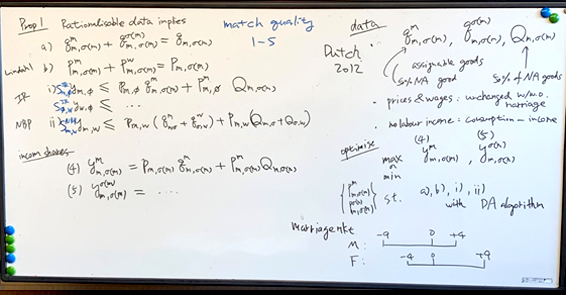 Prop 1 Rationalisable data implies
a) q^m_{m,σ(m)} + q^{σ(m)}_{m,σ(m)} = q_{m,σ(m)}
Lindahl b) P^m_{m,σ(m)} + P^w_{m,σ(m)} = P_{m,σ(m)}
IR i) y_{m,ø} ≤ P_{m,ø} q^m_{m,σ(m)} + P^m_{m,ø} Q_{m,σ(m)}
≤ ...
NBP ii) y_{m,w} ≤ P_{m,w} ( + ) + P_{m,w} ( + )
income shares
(4) y^m_{m,σ(m)} = P_{m,σ(m)} q^m_{m,σ(m)} + P^m_{m,σ(m)} Q_{m,σ(m)}
(5) y^{σ(m)}_{m,σ(m)} = ....
match quality
1-5
data
Dutch
2012
q^m_{m,σ(m)}, q^{σ(m)}_{m,σ(m)}, Q_{m,σ(m)}
assignable goods
50% NA good
50% of NA goods
• prices & wages : unchanged w/m.o. marriage
• no labour income : consumption - income
optimise
(4) (5)
max y^m_{m,σ(m)}, y^{σ(m)}_{m,σ(m)}
or
min
{ P^m_{m,σ(m)} P^{σ(m)}_{m,σ(m)} } s.t. a), b), i), ii)
with DA algorithm
marriage mkt
M: -9 0 +4
F: -4 0 +9